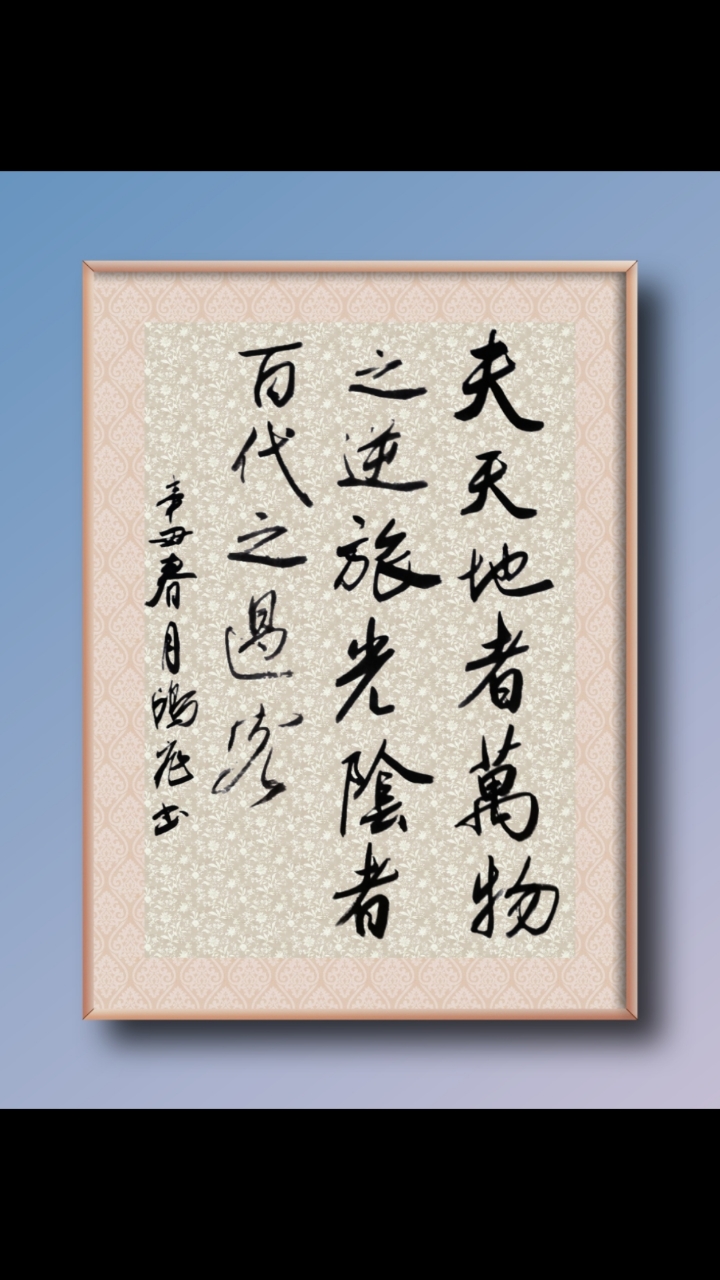 夫天地者萬物
之逆旅光陰者
百代之過客
辛丑春月